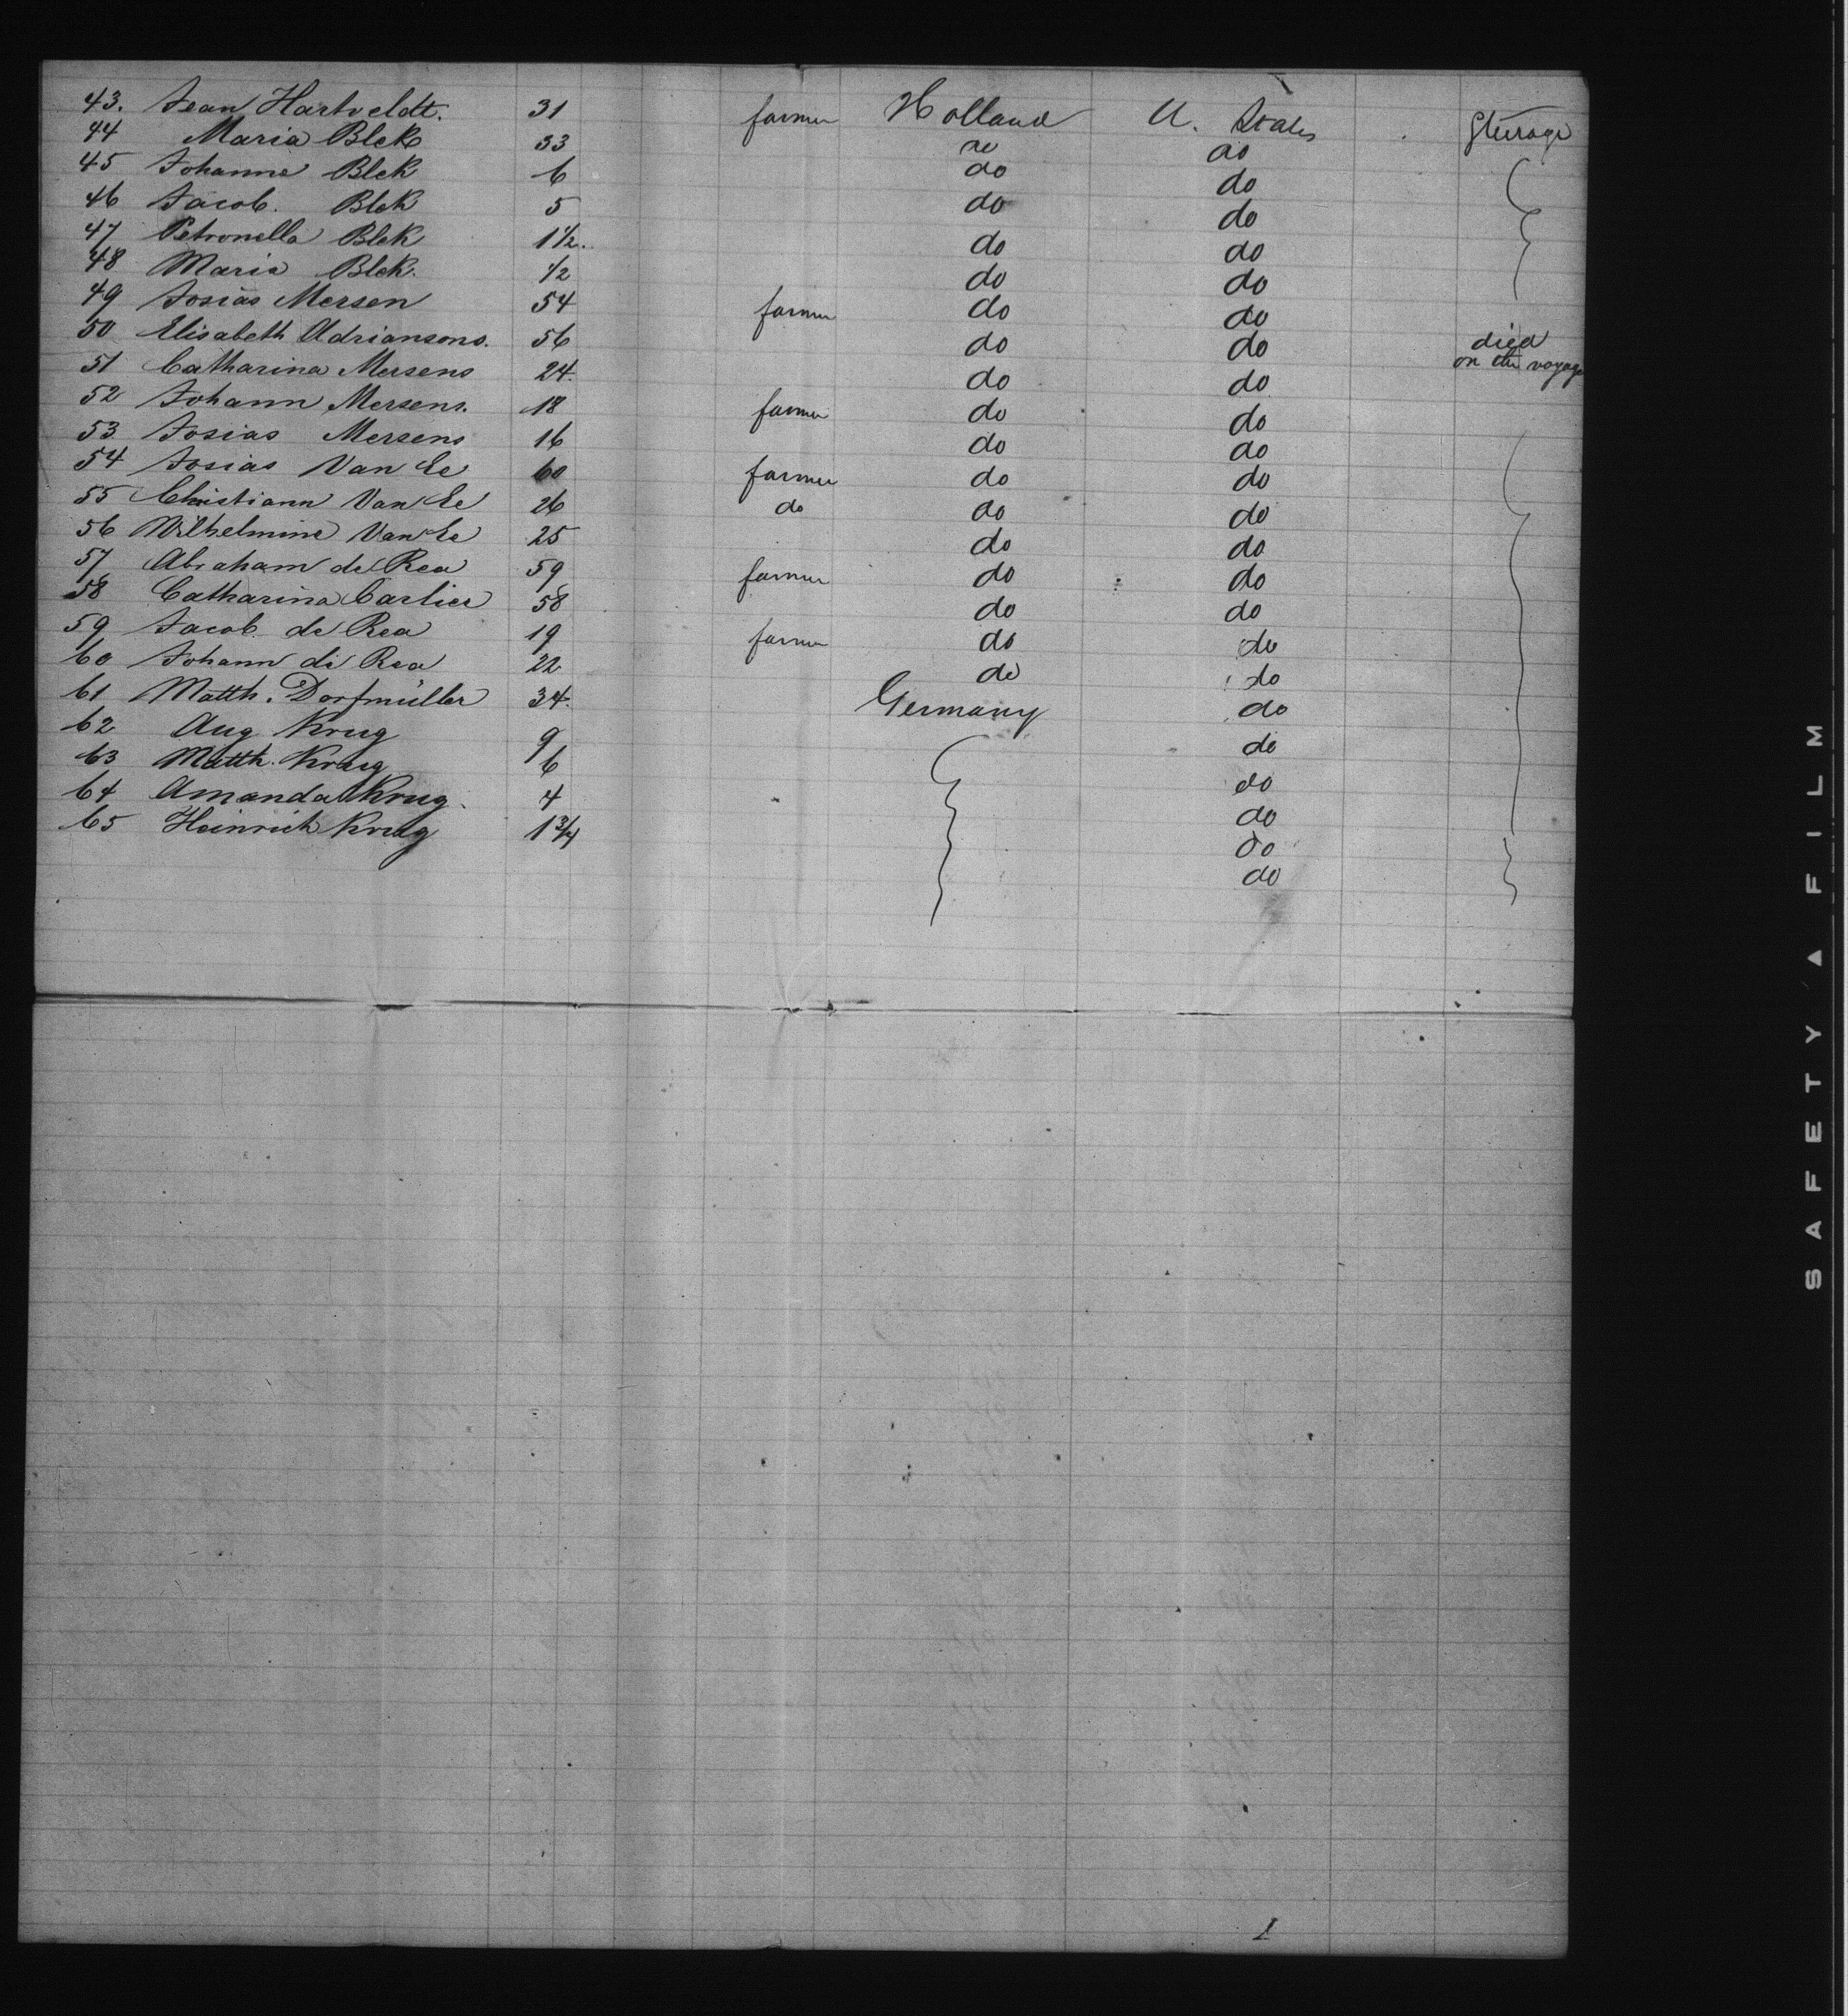 43. Jean Hartveldt. 31 farmer Holland U. States Steerage
44 Maria Blek 33 do do
45 Johanne Blek 6 do do
46 Jacob. Blek 5 do do
47 Petronella Blek 1 1/2. do do
48 Maria Blek. 1/2 do do
49 Josias Mersen 54 farmer do do
50 Elisabeth Adriansens. 56 do do died on the voyage
51 Catharina Mersens 24. do do
52 Johann Mersens. 18 farmer do do
53 Josias Mersens 16 do do
54 Josias Van Ee 60 farmer do do
55 Christiann Van Ee 26 do do do
56 Wilhelmine Van Ee 25 do do
57 Abraham de Rea 59 farmer do do
58 Catharina Carlier 58 do do
59 Jacob de Rea 19 farmer do do
60 Johann de Rea 22 do do
61 Matth. Dorfmüller 34. Germany do
62 Aug Krug 9 do
63 Matth. Krug 6 do
64 Amanda Krug. 4 do
65 Heinrich Krug 1 3/4 do
do
1
SAFETY ▲ FILM